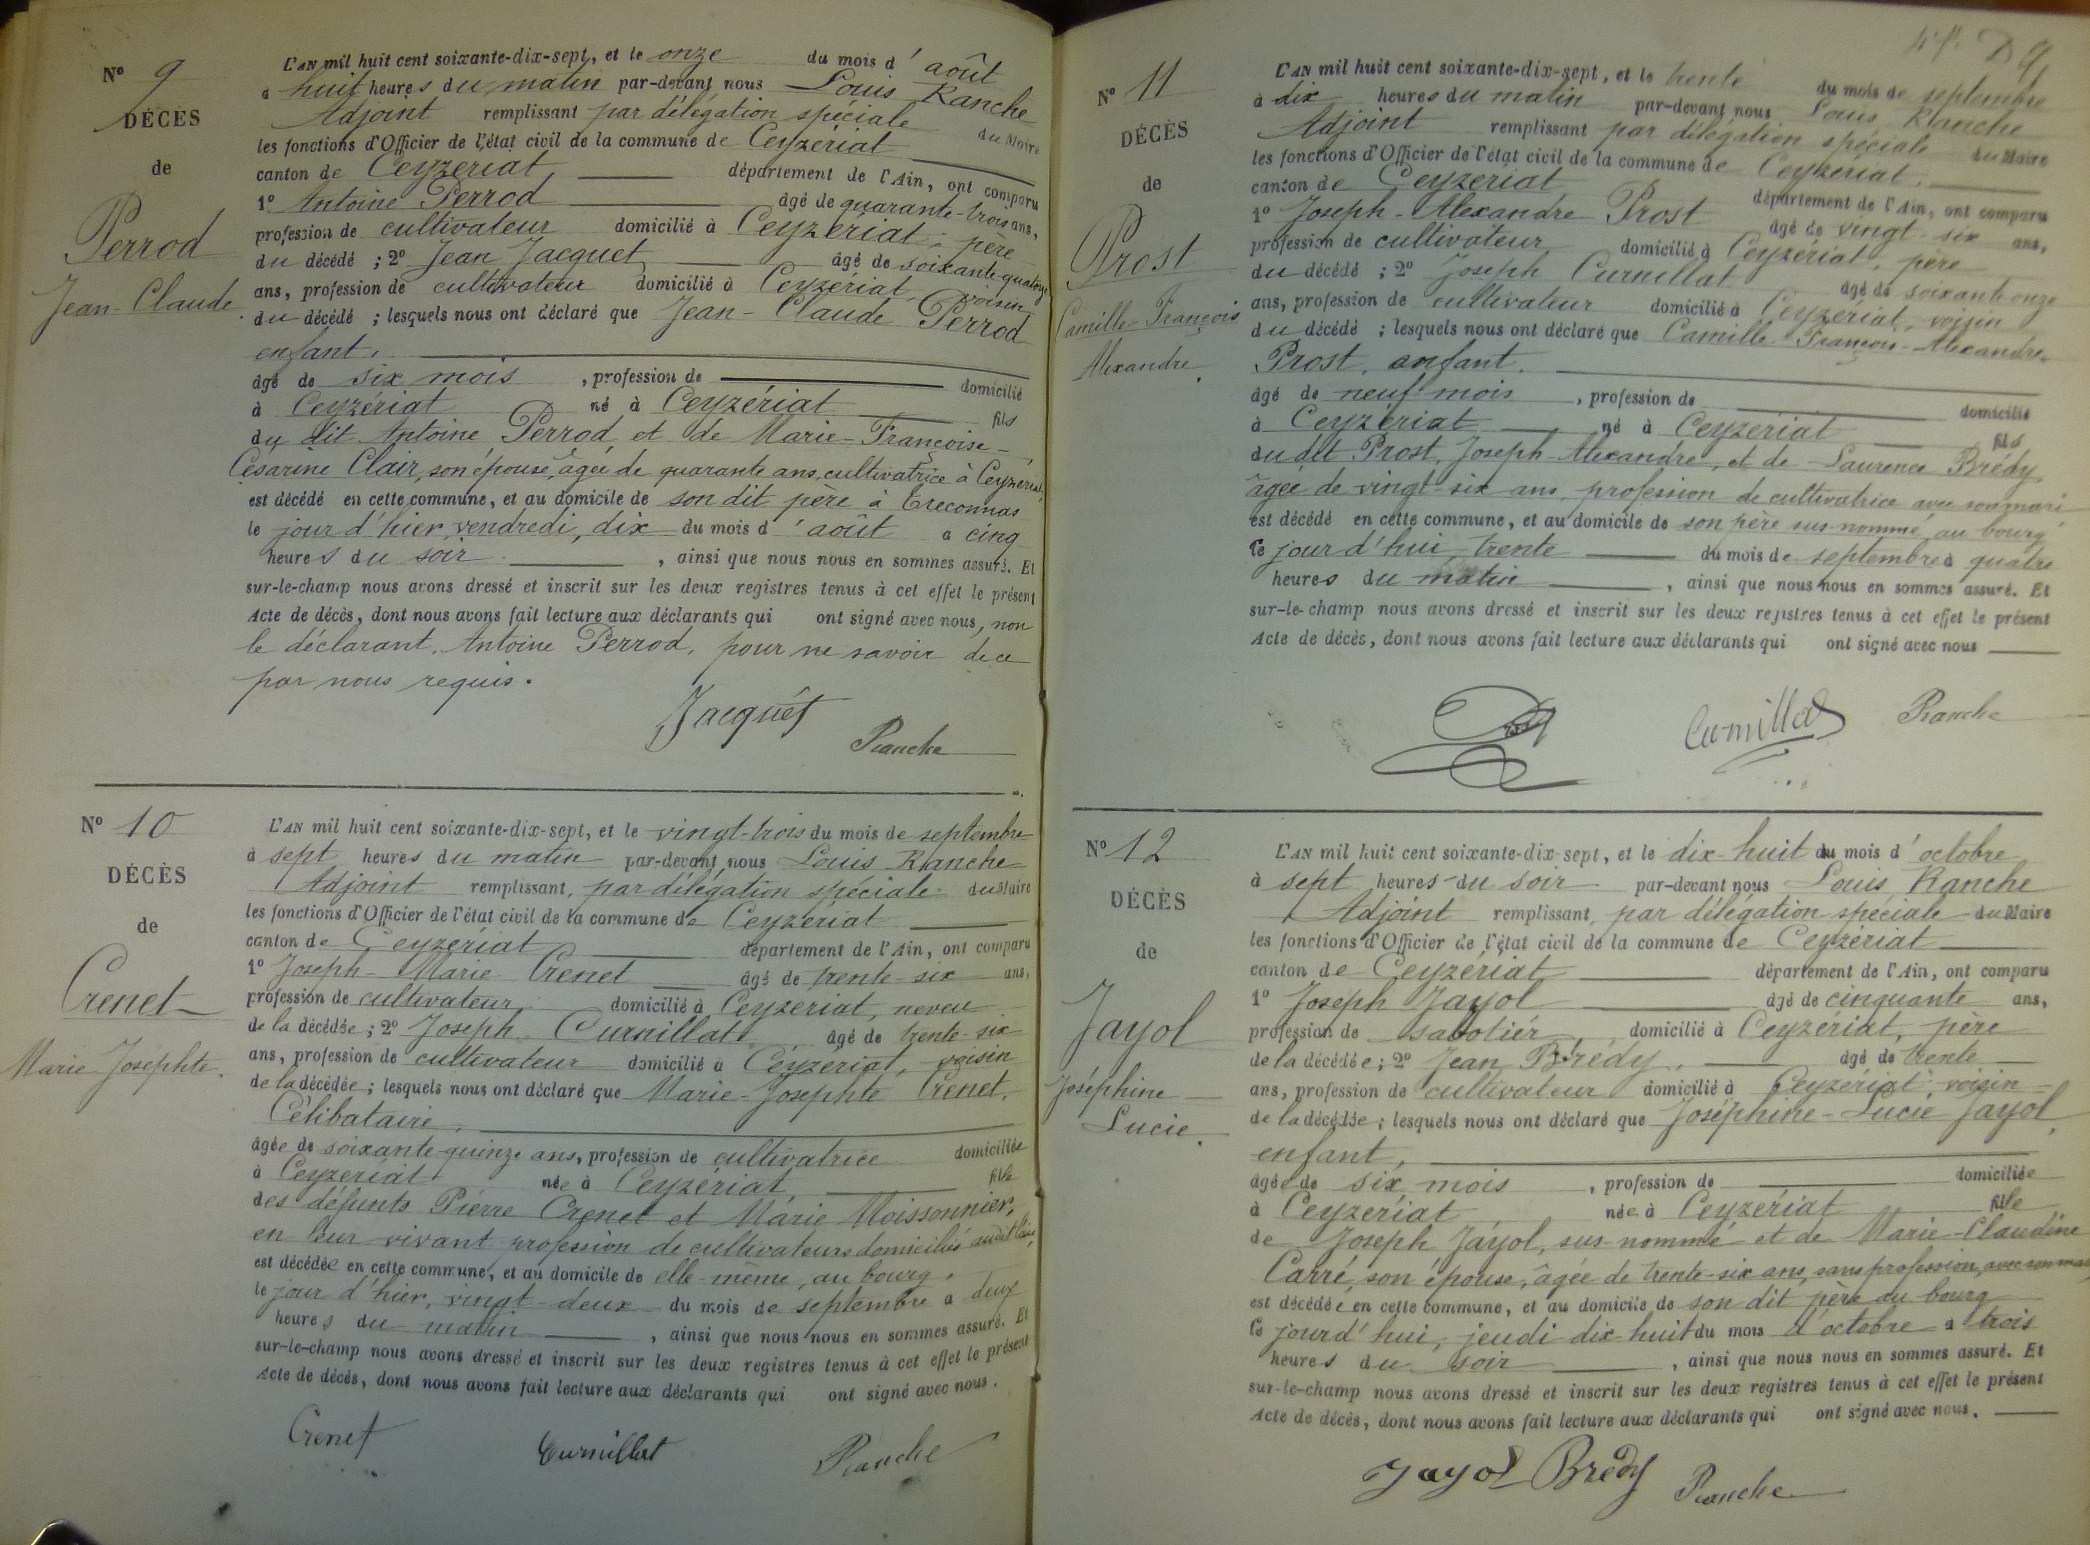 N° 9
DÉCÈS
de
Perrod
Jean-Claude.
L'AN mil huit cent soixante-dix-sept, et le onze du mois d'août
à huit heures du matin par-devant nous Louis Ranche
Adjoint remplissant par délégation spéciale du Maire
les fonctions d'Officier de l'état civil de la commune de Ceyzériat
canton de Ceyzériat département de l'Ain, ont comparu
1° Antoine Perrod âgé de quarante-trois ans,
profession de cultivateur domicilié à Ceyzériat, père
du décédé ; 2° Jean Jacquet âgé de soixante-quatorze
ans, profession de cultivateur domicilié à Ceyzériat, voisin
du décédé ; lesquels nous ont déclaré que Jean-Claude Perrod
enfant,
âgé de six mois , profession de domicilié
à Ceyzériat né à Ceyzériat fils
du dit Antoine Perrod et de Marie-Françoise-
Césarine Clair, son épouse, âgée de quarante ans, cultivatrice à Ceyzériat,
est décédé en cette commune, et au domicile de son dit père à Treconnas
le jour d'hier, vendredi, dix du mois d'août à cinq
heures du soir , ainsi que nous nous en sommes assuré. Et
sur-le-champ nous avons dressé et inscrit sur les deux registres tenus à cet effet le présent
Acte de décès, dont nous avons fait lecture aux déclarants qui ont signé avec nous, non
le déclarant, Antoine Perrod, pour ne savoir de ce
par nous requis.
Jacquet
Ranche
N° 10
DÉCÈS
de
Crenet
Marie Josephte.
L'AN mil huit cent soixante-dix-sept, et le vingt-trois du mois de septembre
à sept heures du matin par-devant nous Louis Ranche
Adjoint remplissant, par délégation spéciale du Maire
les fonctions d'Officier de l'état civil de la commune de Ceyzériat
canton de Ceyzériat département de l'Ain, ont comparu
1° Joseph-Marie Crenet âgé de trente-six ans,
profession de cultivateur domicilié à Ceyzériat, neveu
de la décédée ; 2° Joseph Curnillat âgé de trente-six
ans, profession de cultivateur domicilié à Ceyzériat, voisin
de la décédée ; lesquels nous ont déclaré que Marie-Josephte Crenet,
Célibataire,
âgée de soixante-quinze ans, profession de cultivatrice domiciliée
à Ceyzériat née à Ceyzériat fille
des défunts Pierre Crenet et Marie Moissonnier,
en leur vivant profession de cultivateurs domiciliés audit lieu,
est décédée en cette commune, et au domicile de elle-même, au bourg,
le jour d'hier, vingt-deux du mois de septembre à deux
heures du matin , ainsi que nous nous en sommes assuré. Et
sur-le-champ nous avons dressé et inscrit sur les deux registres tenus à cet effet le présent
Acte de décès, dont nous avons fait lecture aux déclarants qui ont signé avec nous.
Crenet
Curnillat
Ranche
N° 11
DÉCÈS
de
Prost
Camille-François
Alexandre.
L'AN mil huit cent soixante-dix-sept, et le trente du mois de septembre
à dix heures du matin par-devant nous Louis Ranche
Adjoint remplissant par délégation spéciale du Maire
les fonctions d'Officier de l'état civil de la commune de Ceyzériat
canton de Ceyzériat département de l'Ain, ont comparu
1° Joseph-Alexandre Prost âgé de vingt-six ans,
profession de cultivateur domicilié à Ceyzériat, père
du décédé ; 2° Joseph Curnillat âgé de soixante-onze
ans, profession de cultivateur domicilié à Ceyzériat, voisin
du décédé ; lesquels nous ont déclaré que Camille-François-Alexandre
Prost, enfant,
âgé de neuf mois , profession de domicilié
à Ceyzériat né à Ceyzériat fils
du dit Prost, Joseph-Alexandre, et de Laurence Brédy
âgée de vingt-six ans, profession de cultivatrice avec son mari
est décédé en cette commune, et au domicile de son père sus-nommé, au bourg
le jour d'hui, trente du mois de septembre à quatre
heures du matin , ainsi que nous nous en sommes assuré. Et
sur-le-champ nous avons dressé et inscrit sur les deux registres tenus à cet effet le présent
Acte de décès, dont nous avons fait lecture aux déclarants qui ont signé avec nous
Curnillat
Ranche
N° 12
DÉCÈS
de
Jayol
Joséphine
Lucie.
L'AN mil huit cent soixante-dix-sept, et le dix-huit du mois d'octobre
à sept heures du soir par-devant nous Louis Ranche
Adjoint remplissant, par délégation spéciale du Maire
les fonctions d'Officier de l'état civil de la commune de Ceyzériat
canton de Ceyzériat département de l'Ain, ont comparu
1° Joseph Jayol âgé de cinquante ans,
profession de sabotier domicilié à Ceyzériat, père
de la décédée ; 2° Jean Brédy, âgé de trente
ans, profession de cultivateur domicilié à Ceyzériat voisin
de la décédée ; lesquels nous ont déclaré que Joséphine-Lucie Jayol,
enfant,
âgée de six mois , profession de domiciliée
à Ceyzériat née à Ceyzériat fille
de Joseph Jayol, sus-nommé et de Marie-Claudine
Carré, son épouse, âgée de trente-six ans, sans profession, avec son mari,
est décédée en cette commune, et au domicile de son dit père au bourg
le jour d'hui, jeudi dix-huit du mois d'octobre à trois
heures du soir , ainsi que nous nous en sommes assuré. Et
sur-le-champ nous avons dressé et inscrit sur les deux registres tenus à cet effet le présent
Acte de décès, dont nous avons fait lecture aux déclarants qui ont signé avec nous.
Jayol Brédy Ranche